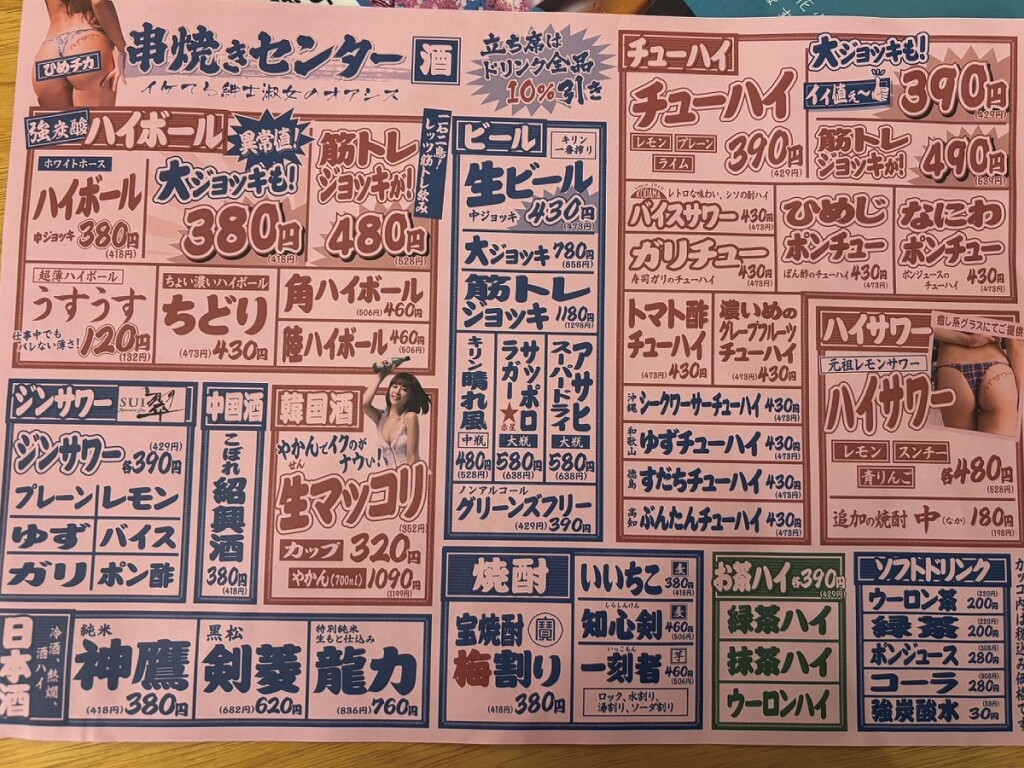 ひめチカ
串焼きセンター 酒
イケてる紳士淑女のオアシス
立ち席は
ドリンク全品
10%引き
強炭酸 ハイボール
ホワイトホース
ハイボール
中ジョッキ 380円
(418円)
異常値!
大ジョッキも!
380円
(418円)
筋トレ
ジョッキが!
480円
(528円)
レッツ筋トレ飲み
超薄ハイボール
うすうす
仕事中でも
バレない薄さ!
120円
(132円)
ちょい濃いハイボール
ちどり
(473円) 430円
角ハイボール
(506円) 460円
陸ハイボール 460円
(506円)
ジンサワー SUI 翠
ジンサワー (429円)
各390円
プレーン レモン
ゆず バイス
ガリ ポン酢
中国酒
こぼれ紹興酒
380円
(418円)
韓国酒
やかんでイクのが
ナウい!
せん
生マッコリ
(352円)
カップ 320円
やかん(700mL) 1090円
(1199円)
日本酒
冷酒、熱燗、
酒ハイ
純米
神鷹
(418円) 380円
黒松
剣菱
(682円) 620円
特別純米
生もと仕込み
龍力
(836円) 760円
ビール キリン
一番搾り
生ビール
中ジョッキ 430円
(473円)
大ジョッキ 780円
(858円)
筋トレ
ジョッキ 1180円
(1298円)
キリン晴れ風
中瓶
480円
(528円)
サッポロ
ラガー★
赤星
大瓶
580円
(638円)
アサヒ
スーパードライ
大瓶
580円
(638円)
ノンアルコール
グリーンズフリー
(429円) 390円
焼酎
宝焼酎 寶
梅割り
(418円) 380円
いいちこ 麦 380円
(418円)
しらしんけん
知心剣 麦 460円
(506円)
いっこもん
一刻者 芋 460円
(506円)
ロック、水割り、
湯割り、ソーダ割り
チューハイ
チューハイ
レモン プレーン
ライム
390円
(429円)
大ジョッキも!
イイ値ぇ〜
390円
(429円)
筋トレ
ジョッキが!
490円
(539円)
KODAMA
レトロな味わい、シソの酎ハイ
バイスサワー 430円
(473円)
ガリチュー
寿司ガリのチューハイ 430円
(473円)
ひめじ
ポンチュー
ぽん酢のチューハイ 430円
(473円)
なにわ
ポンチュー
ポンジュースの
チューハイ
430円
(473円)
トマト酢
チューハイ
(473円) 430円
濃いめの
グレープフルーツ
チューハイ
(473円) 430円
沖縄 シークワーサーチューハイ 430円
(473円)
和歌山 ゆずチューハイ 430円
(473円)
徳島 すだちチューハイ 430円
(473円)
高知 ぶんたんチューハイ 430円
(473円)
ハイサワー
癒し系グラスにてご提供
元祖レモンサワー
ハイサワー
レモン スンチー
青りんご
各480円
(528円)
追加の焼酎 中(なか) 180円
(198円)
お茶ハイ 各390円
(429円)
緑茶ハイ
抹茶ハイ
ウーロンハイ
ソフトドリンク
ウーロン茶 (220円)
200円
緑茶 (220円)
200円
ポンジュース (308円)
280円
コーラ (308円)
280円
強炭酸水 (33円)
30円
カッコ内は税込み価格です